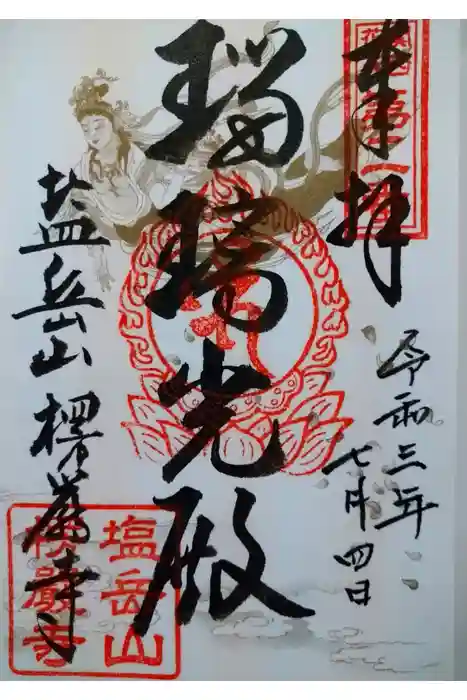 奉拝
令和三年
七月四日
瑠璃光殿
塩岳山楞嚴寺
塩岳山
楞嚴寺